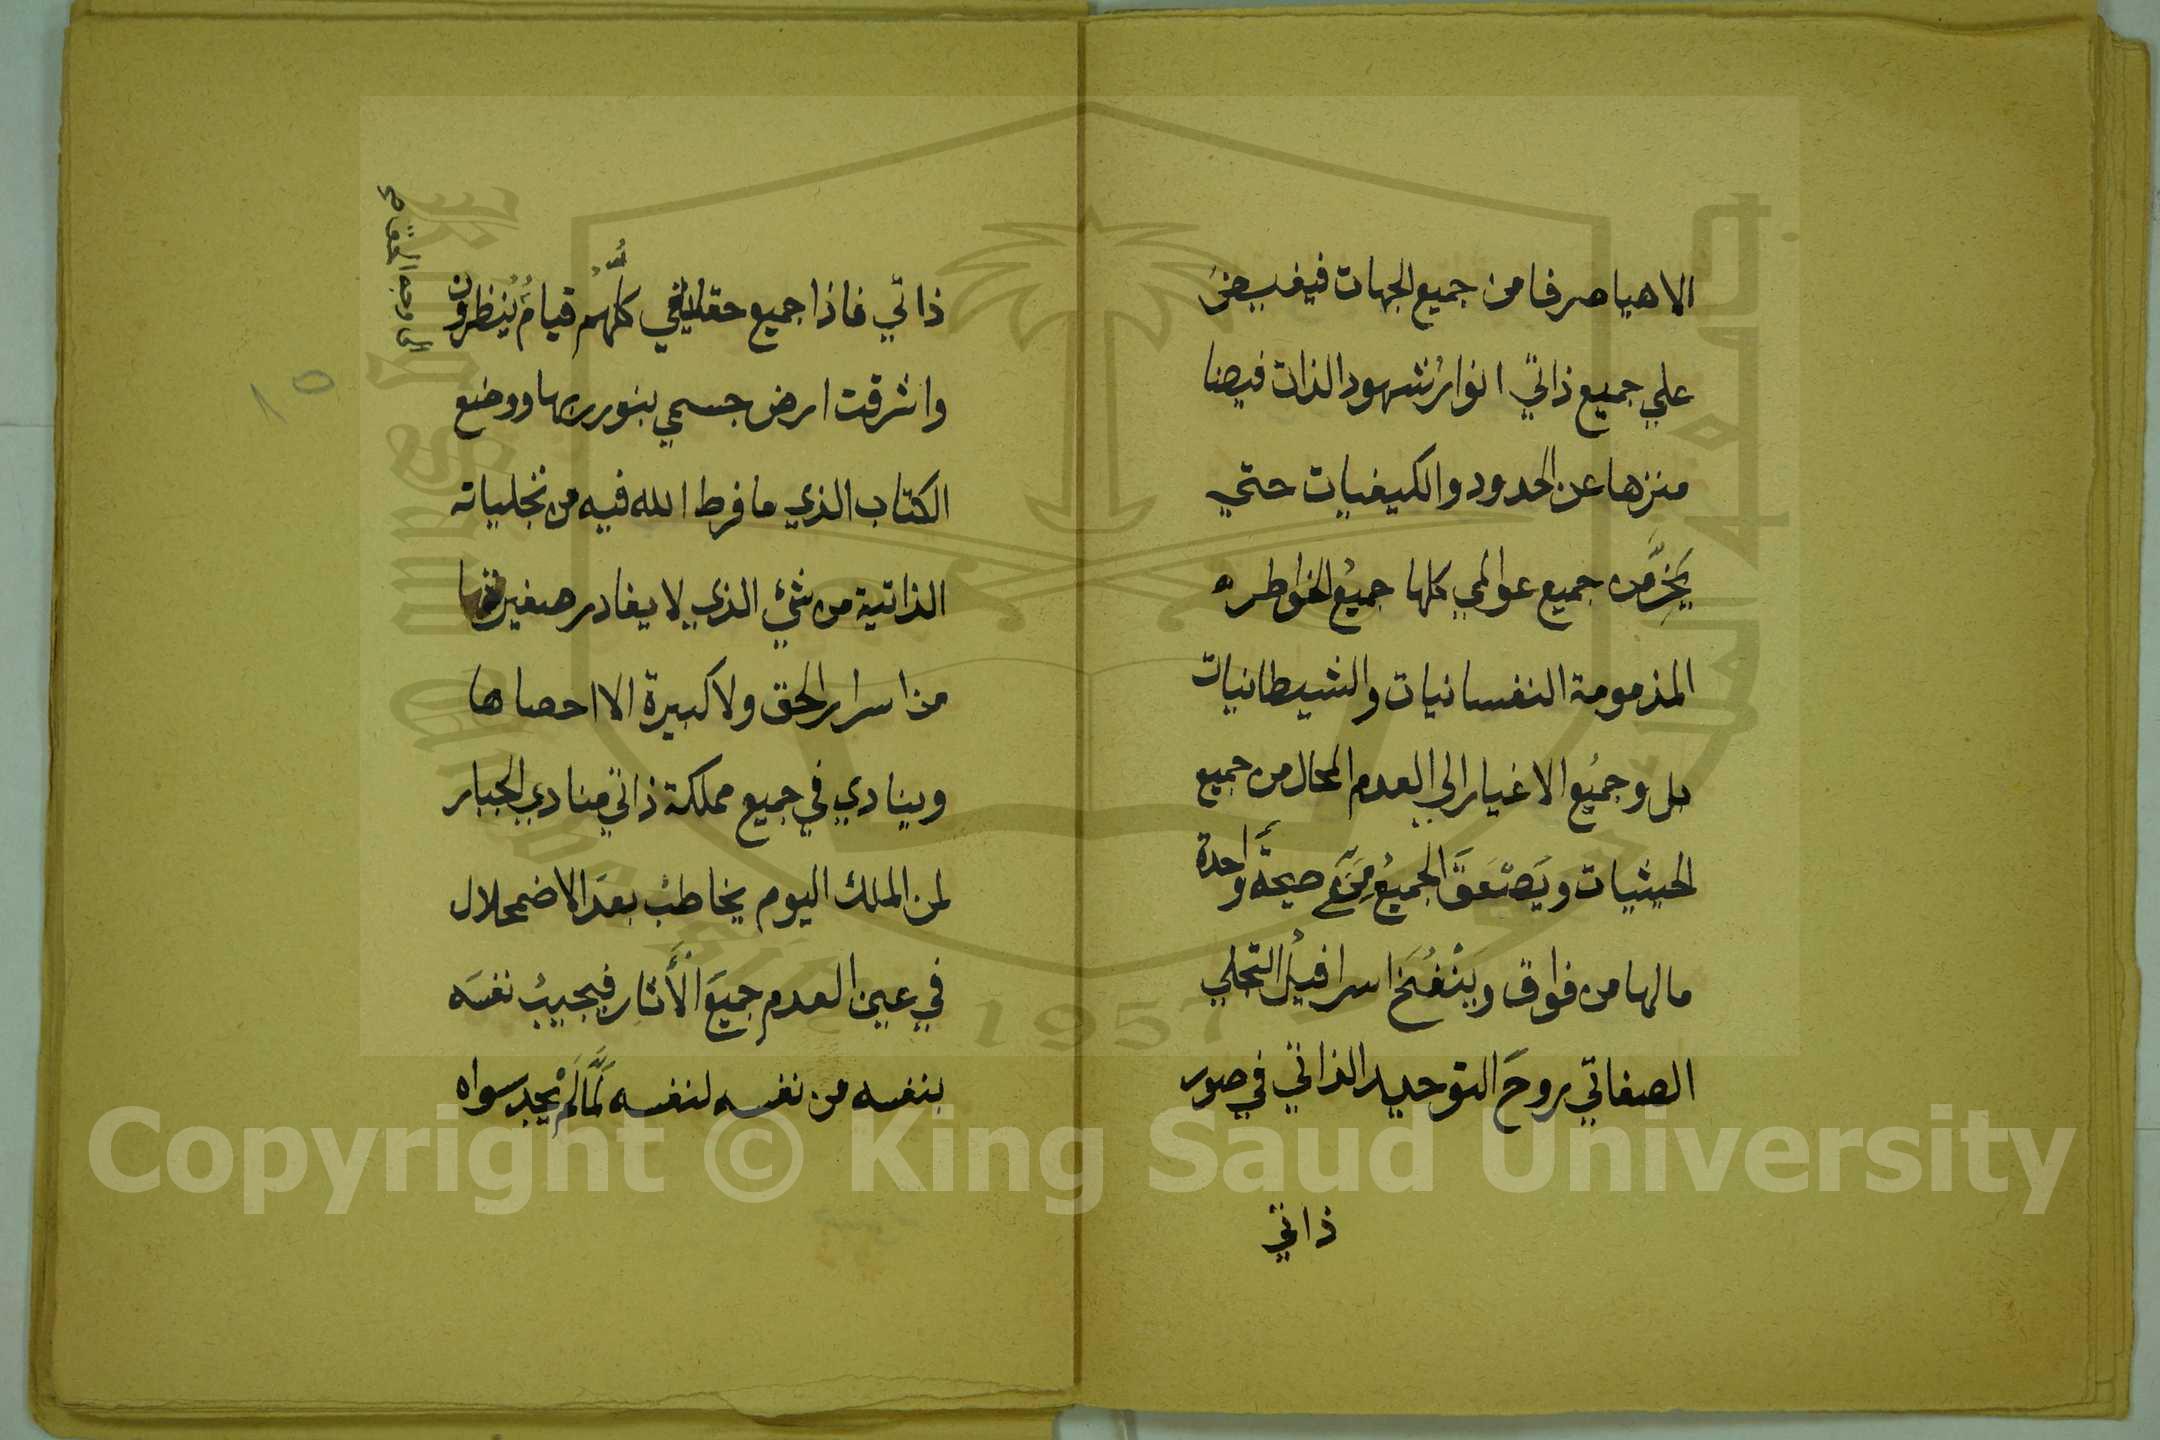 الاهيا صرفا من جميع الجهات فيفيض
علي جميع ذاتي انوارُ شهود الذات فيضا
منزها عن الحدود والكيفيات حتي
يَخِرَّ من جميع عوالمي كلها جميعُ الخواطره
المذمومة النفسانيات والشيطانيات
بل وجميُع الاغيار الي العدم المحال من جميع
الحيثيات ويَصْعَقَ الجميعُ مِنَ صيحةٍ واحدة
مالها من فواق ويَنْفُخَ اسرافيلُ التجلي
الصفاتي بروحَ التوحيد الذاتي في صور
ذاتي
ذاتي فاذا جميع حقايقي كلُّهُم قيامٌ يُنظرون
الي وجه الحق
واشرقت ارض جسمي بنور ربها ووضع
الكتاب الذي ما فرط الله فيه من تجلياته
الذاتية من شئ الذي لا يغادر صغيرة
من اسرار الحق ولا كبيرة الا احصاها
وينادي في جميع مملكة ذاتي منادي الجبار
لمن الملك اليوم يخاطبُ بعدَ الاضمحلال
في عين العدم جميعَ الأَثار فيجيبُ نفسَه
بنفسه من نفسه لنفسه لَمَّا لَمْ يجد سواه
١٥
Copyright © King Saud University
King Saud University
1957